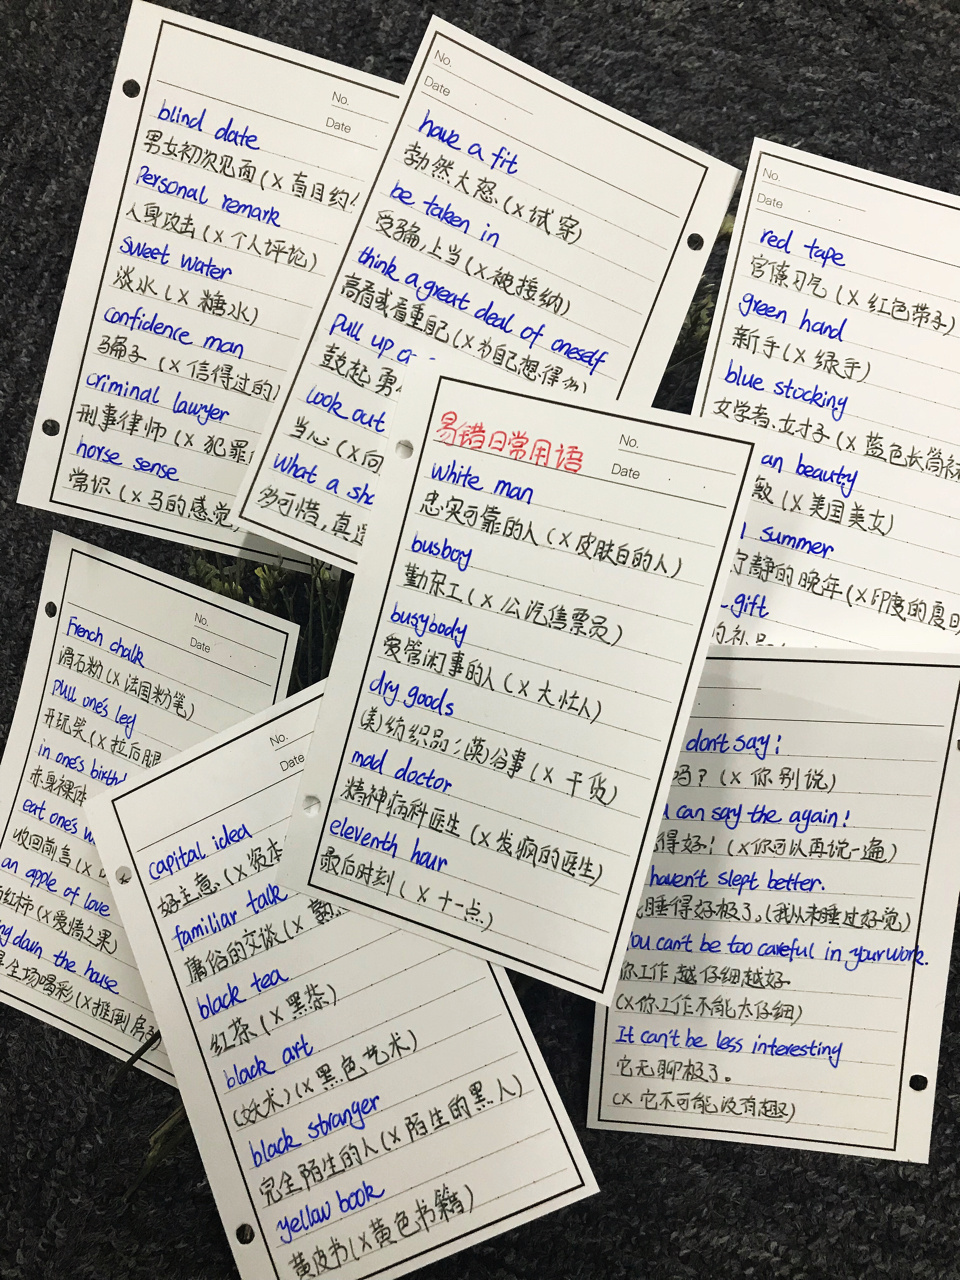 No.
Date
blind date
男女初次见面(×盲目约
Personal remark
人身攻击(×个人评论)
sweet water
淡水(×糖水)
confidence man
骗子(×信得过的
criminal lawyer
刑事律师(×犯罪
horse sense
常识(×马的感觉,
No.
Date
have a fit
勃然大怒.(×试穿)
be taken in
受骗,上当(×被接纳)
think a great deal of oneself
高看或看重自己(×为自己想得
Pull up
鼓起勇
look out
当心(×向
what a
多可惜,真
No.
Date
red tape
官僚习气(×红色带子)
green hand
新手(×绿手)
blue stocking
女学者、女才子(×蓝色长筒袜
an beauty
敏(×美国美女)
summer
宁静的晚年(×印度的夏日
gift
的礼品
易错日常用语
No.
Date
white man
忠实可靠的人(×皮肤白的人)
busboy
勤杂工(×公汽售票员)
busybody
爱管闲事的人(×大忙人)
dry goods
(美)纺织品;(英)谷事(×干货)
mad doctor
精神病科医生(×发疯的医生)
eleventh hour
最后时刻(×十一点)
No.
Date
French chalk
滑石粉(×法国粉笔)
pull one's leg
开玩笑(×拉后腿
in one's birth
赤身裸体
eat one's w
收回前言(×
an apple of love
红柿(×爱情之果)
ng down the house
全场喝彩(×推倒房子
No.
Date
capital idea
好主意(×资本
familiar talk
庸俗的交谈(×熟
black tea
红茶(×黑茶)
black art
(妖术)(×黑色艺术)
black stranger
完全陌生的人(×陌生的黑人)
yellow book
黄皮书(×黄色书籍)
don't say!
吗?(×你别说)
can say the again!
得好!(×你可以再说一遍)
haven't slept better.
睡得好极了.(我从未睡过好觉)
You can't be too careful in your work.
你工作越仔细越好
(×你工作不能太仔细)
It can't be less interesting
它无聊极了。
(×它不可能没有趣)